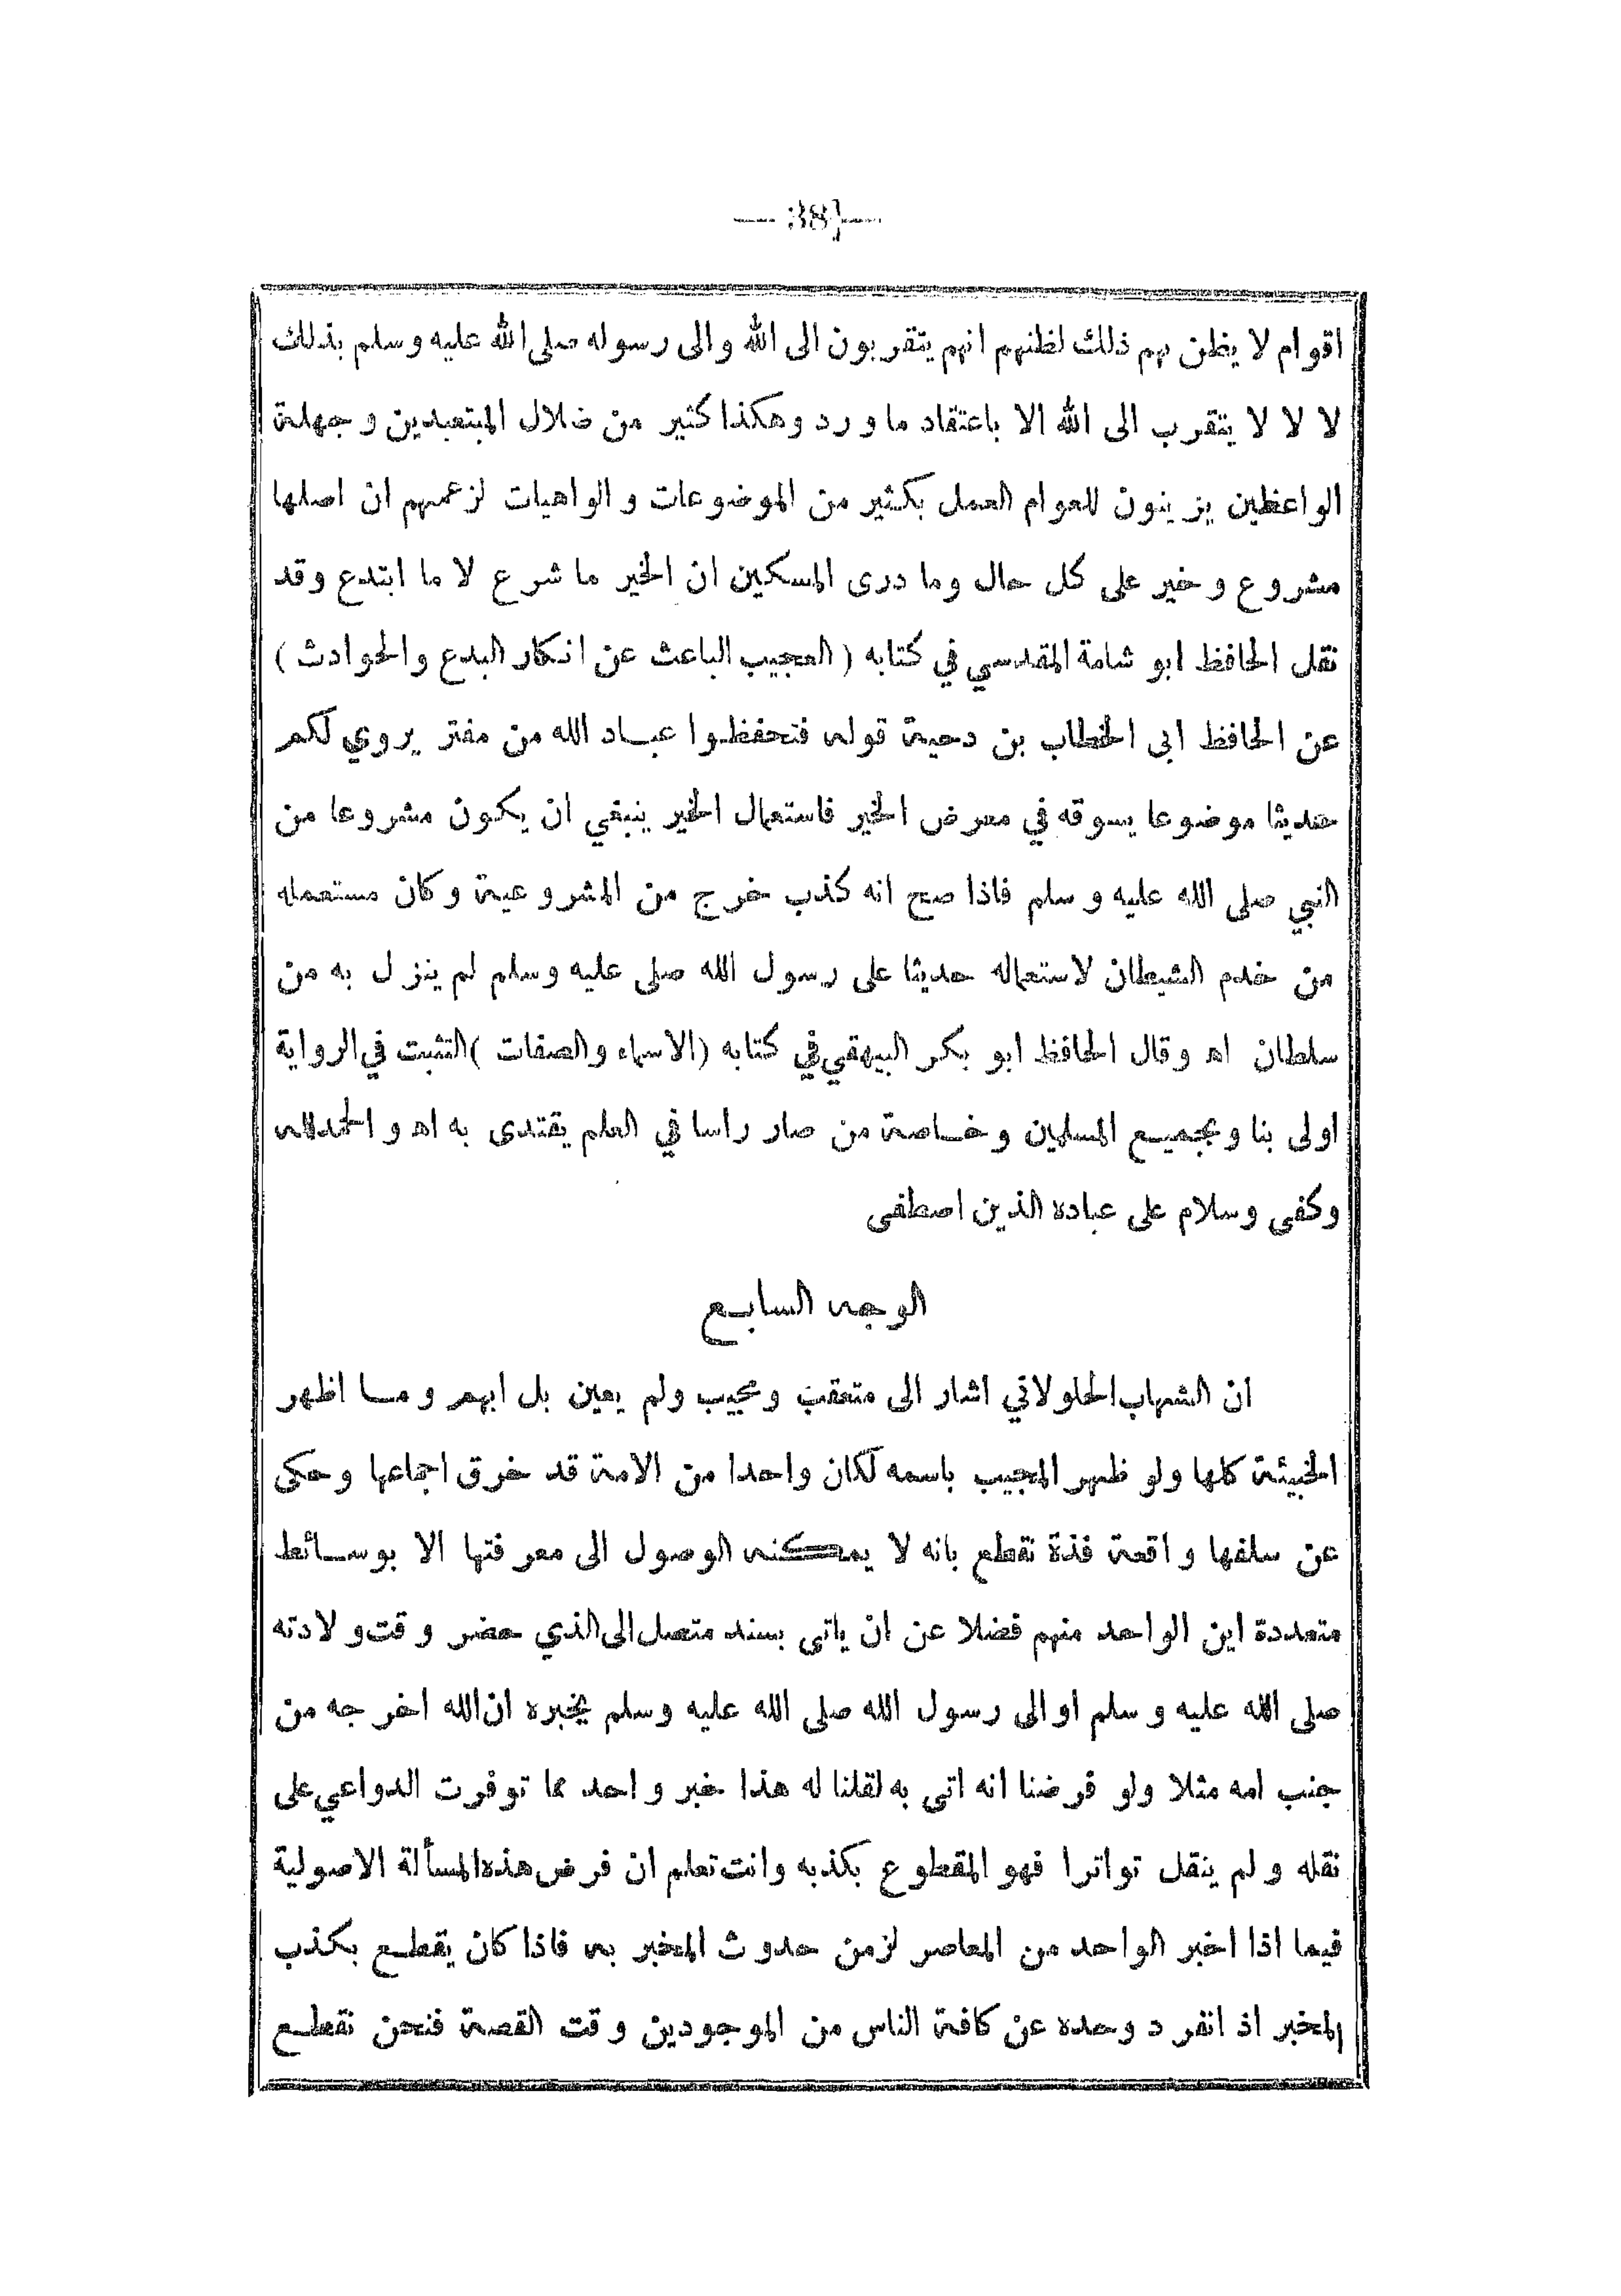 — 38} —
اقوام لا يظن بهم ذلك لظنهم انهم يتقربون الى الله والى رسوله صلى الله عليه وسلم بذلك
لا لا لا يتقرب الى الله الا باعتقاد ما ورد وهكذا كثير من ضلال المبتعبدين وجهلة
الواعظين يزينون للعوام العمل بكثير من الموضوعات والواهيات لزعمهم ان اصلها
مشروع وخير على كل حال وما درى المسكين ان الخير ما شرع لا ما ابتدع وقد
نقل الحافظ ابو شامة المقدسي في كتابه ( العجيب الباعث عن انكار البدع والحوادث )
عن الحافظ ابى الخطاب بن دحية قوله فتحفظوا عباد الله من مفتر يروي لكم
حديثا موضوعا يسوقه في معرض الخير فاستعمال الخير ينبغي ان يكون مشروعا من
النبي صلى الله عليه وسلم فاذا صح انه كذب خرج من المشروعية وكان مستعمله
من خدم الشيطان لاستعماله حديثا على رسول الله صلى عليه وسلم لم ينزل به من
سلطان اه وقال الحافظ ابو بكر البيهقي في كتابه (الاسماء والصفات )التثبت في الرواية
اولى بنا وبجميع المسلمين وخاصة من صار راسا في العلم يقتدى به اه والحمد لله
وكفى وسلام على عباده الذين اصطفى
الوجه السابع
ان الشهاب الحلولاقي اشار الى متعقب ومجيب ولم يعين بل ابهم وما اظهر
الخبيئة كلها ولو ظهر المجيب باسمه لكان واحدا من الامة قد خرق اجماعها وحكى
عن سلفها واقعة فذة نقطع بانه لا يمكنه الوصول الى معرفتها الا بوسائط
متعددة اين الواحد منهم فضلا عن ان ياتى بسند متصل الى الذي حضر وقت ولادته
صلى الله عليه وسلم او الى رسول الله صلى الله عليه وسلم يخبره ان الله اخرجه من
جنب امه مثلا ولو فرضنا انه اتى به لقلنا له هذا خبر واحد مما توفرت الدواعي على
نقله ولم ينقل تواترا فهو المقطوع بكذبه وانت تعلم ان فرض هذه المسألة الاصولية
فيما اذا اخبر الواحد من المعاصر لزمن حدوث المخبر به فاذا كان يقطع بكذب
المخبر اذ انفرد وحده عن كافة الناس من الموجودين وقت القصة فنحن نقطع